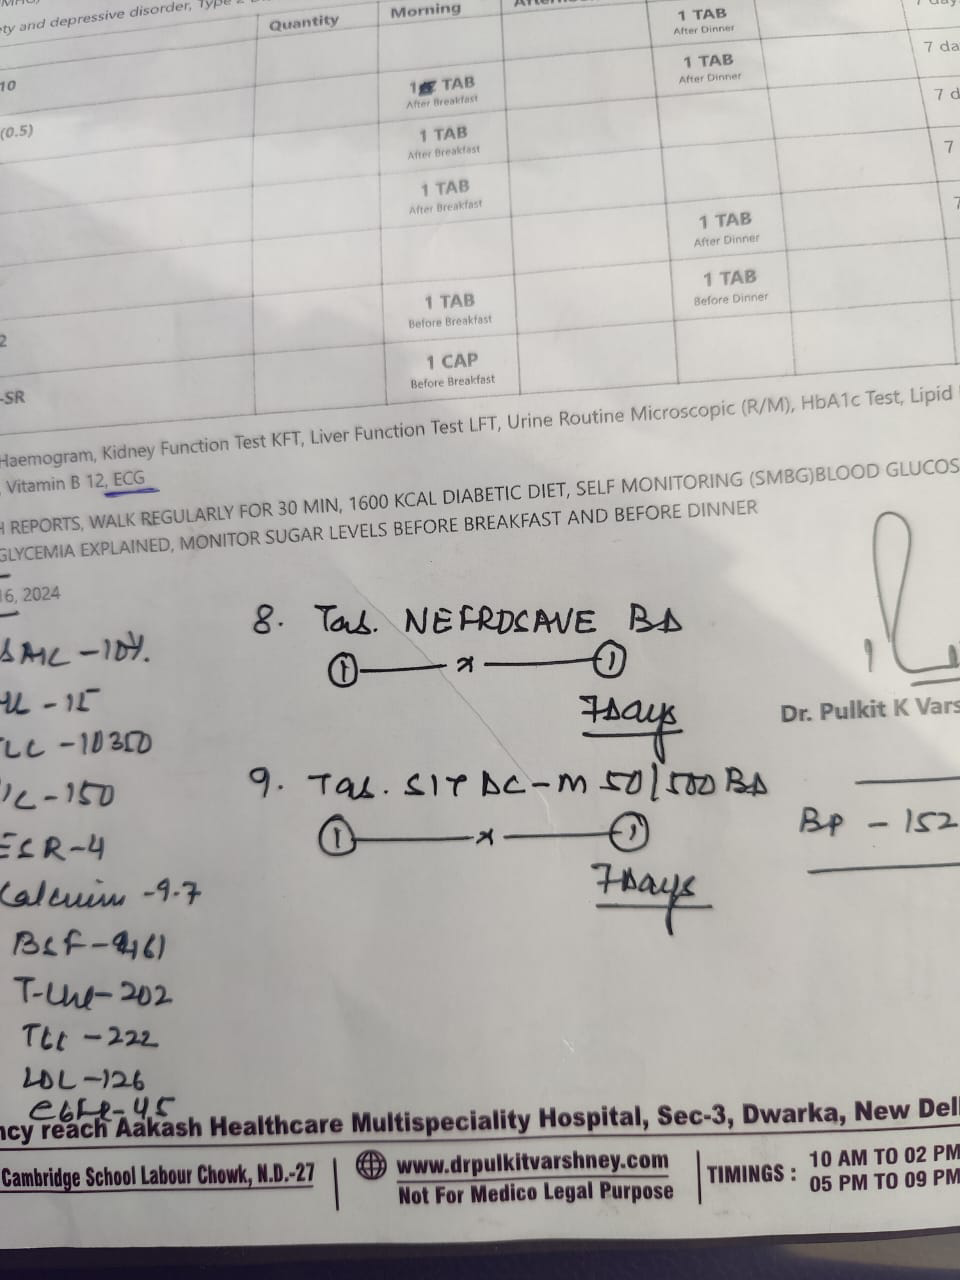 ty and depressive disorder, Type 2
Quantity Morning
1 TAB
After Dinner
10 1 TAB 1 TAB 7 da
After Breakfast After Dinner
(0.5) 1 TAB 7 d
After Breakfast
1 TAB 7
After Breakfast
1 TAB 7
After Dinner
2 1 TAB 1 TAB
Before Breakfast Before Dinner
-SR 1 CAP
Before Breakfast
Haemogram, Kidney Function Test KFT, Liver Function Test LFT, Urine Routine Microscopic (R/M), HbA1c Test, Lipid
, Vitamin B 12, ECG
H REPORTS, WALK REGULARLY FOR 30 MIN, 1600 KCAL DIABETIC DIET, SELF MONITORING (SMBG)BLOOD GLUCOS
GLYCEMIA EXPLAINED, MONITOR SUGAR LEVELS BEFORE BREAKFAST AND BEFORE DINNER
16, 2024
8. Tab. NEFROSAVE BD
1 x 1
7 Days
Dr. Pulkit K Vars
9. Tab. SIT DC-M 50/500 BD
1 x 1
7 Days
BP - 152
- 15
TLC - 10350
- 150
ESR - 4
Calcium - 9.7
T-Che - 202
- 222
LDL - 126
eGFR - 45
ncy reach Aakash Healthcare Multispeciality Hospital, Sec-3, Dwarka, New Del
Cambridge School Labour Chowk, N.D.-27
www.drpulkitvarshney.com
Not For Medico Legal Purpose
TIMINGS : 10 AM TO 02 PM
05 PM TO 09 PM